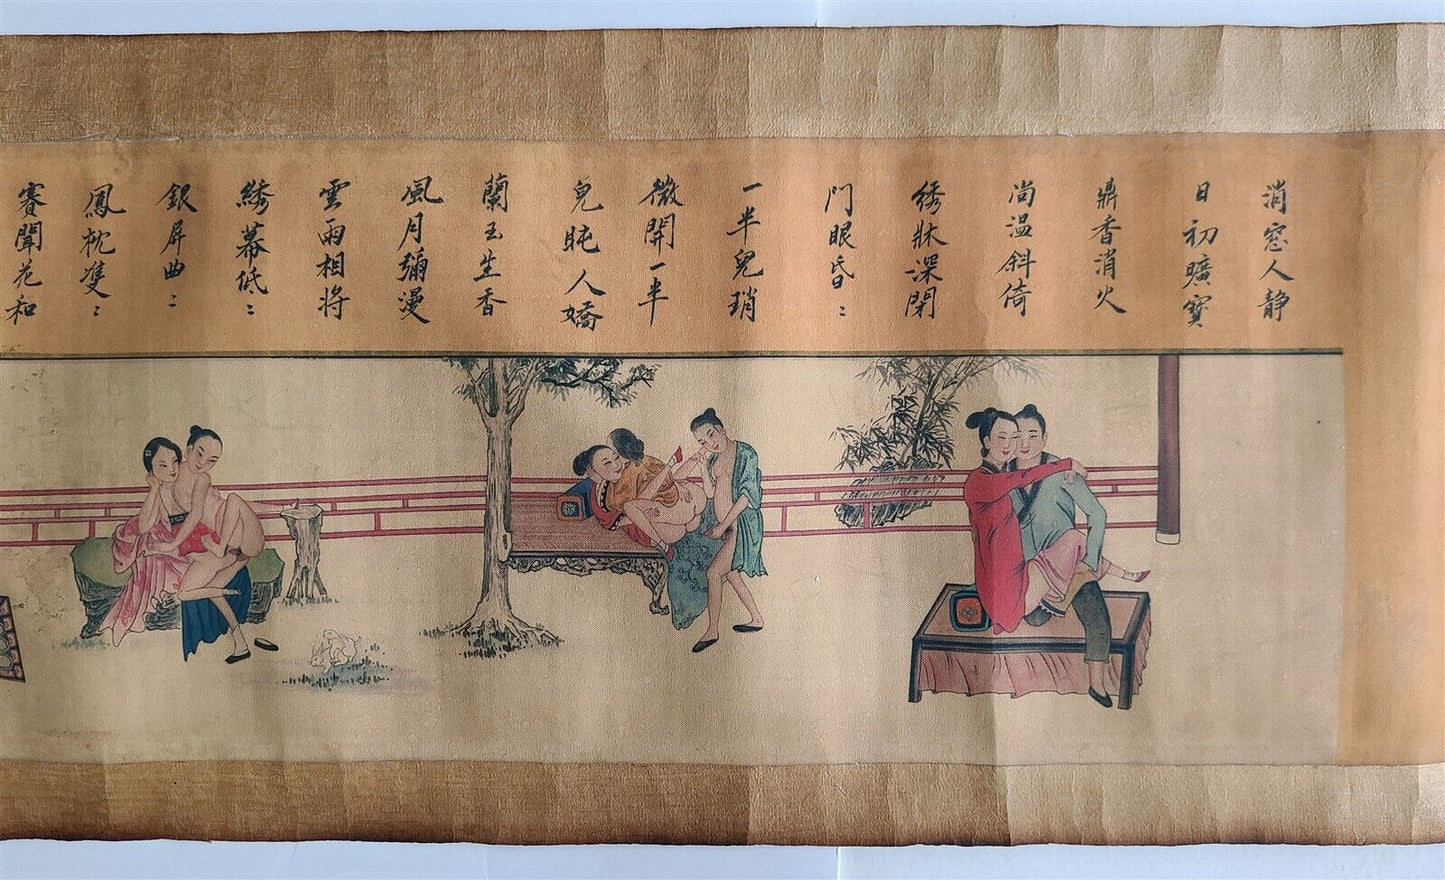 消窓人静
日初曠寳
鼎香消火
尚温斜倚
綉牀深閉
門眼昏〻
一半兒瑣
微開一半
兒盹人嬌
蘭玉生香
風月彌漫
雲雨相將
綉幕低〻
銀屏曲〻
鳳枕雙〻
賽聞花和